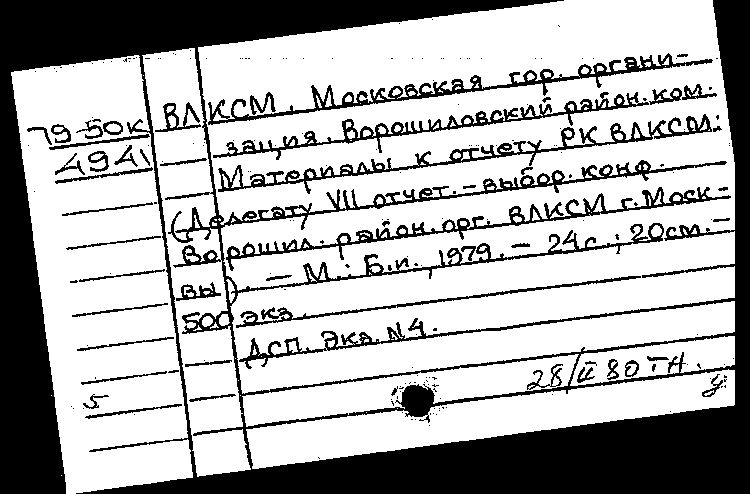 79-50К ВЛКСМ. Московская гор. органи-
4941 зация. Ворошиловский район. ком.
Материалы к отчету РК ВЛКСМ:
(Делегату VII отчет.-выбор. конф.
Ворошил. район. орг. ВЛКСМ г. Моск-
вы). — М.: Б.и., 1979. — 24с.; 20см. —
500 экз.
ДСП. Экз. N4.
28/II 80 ТН.
5 у